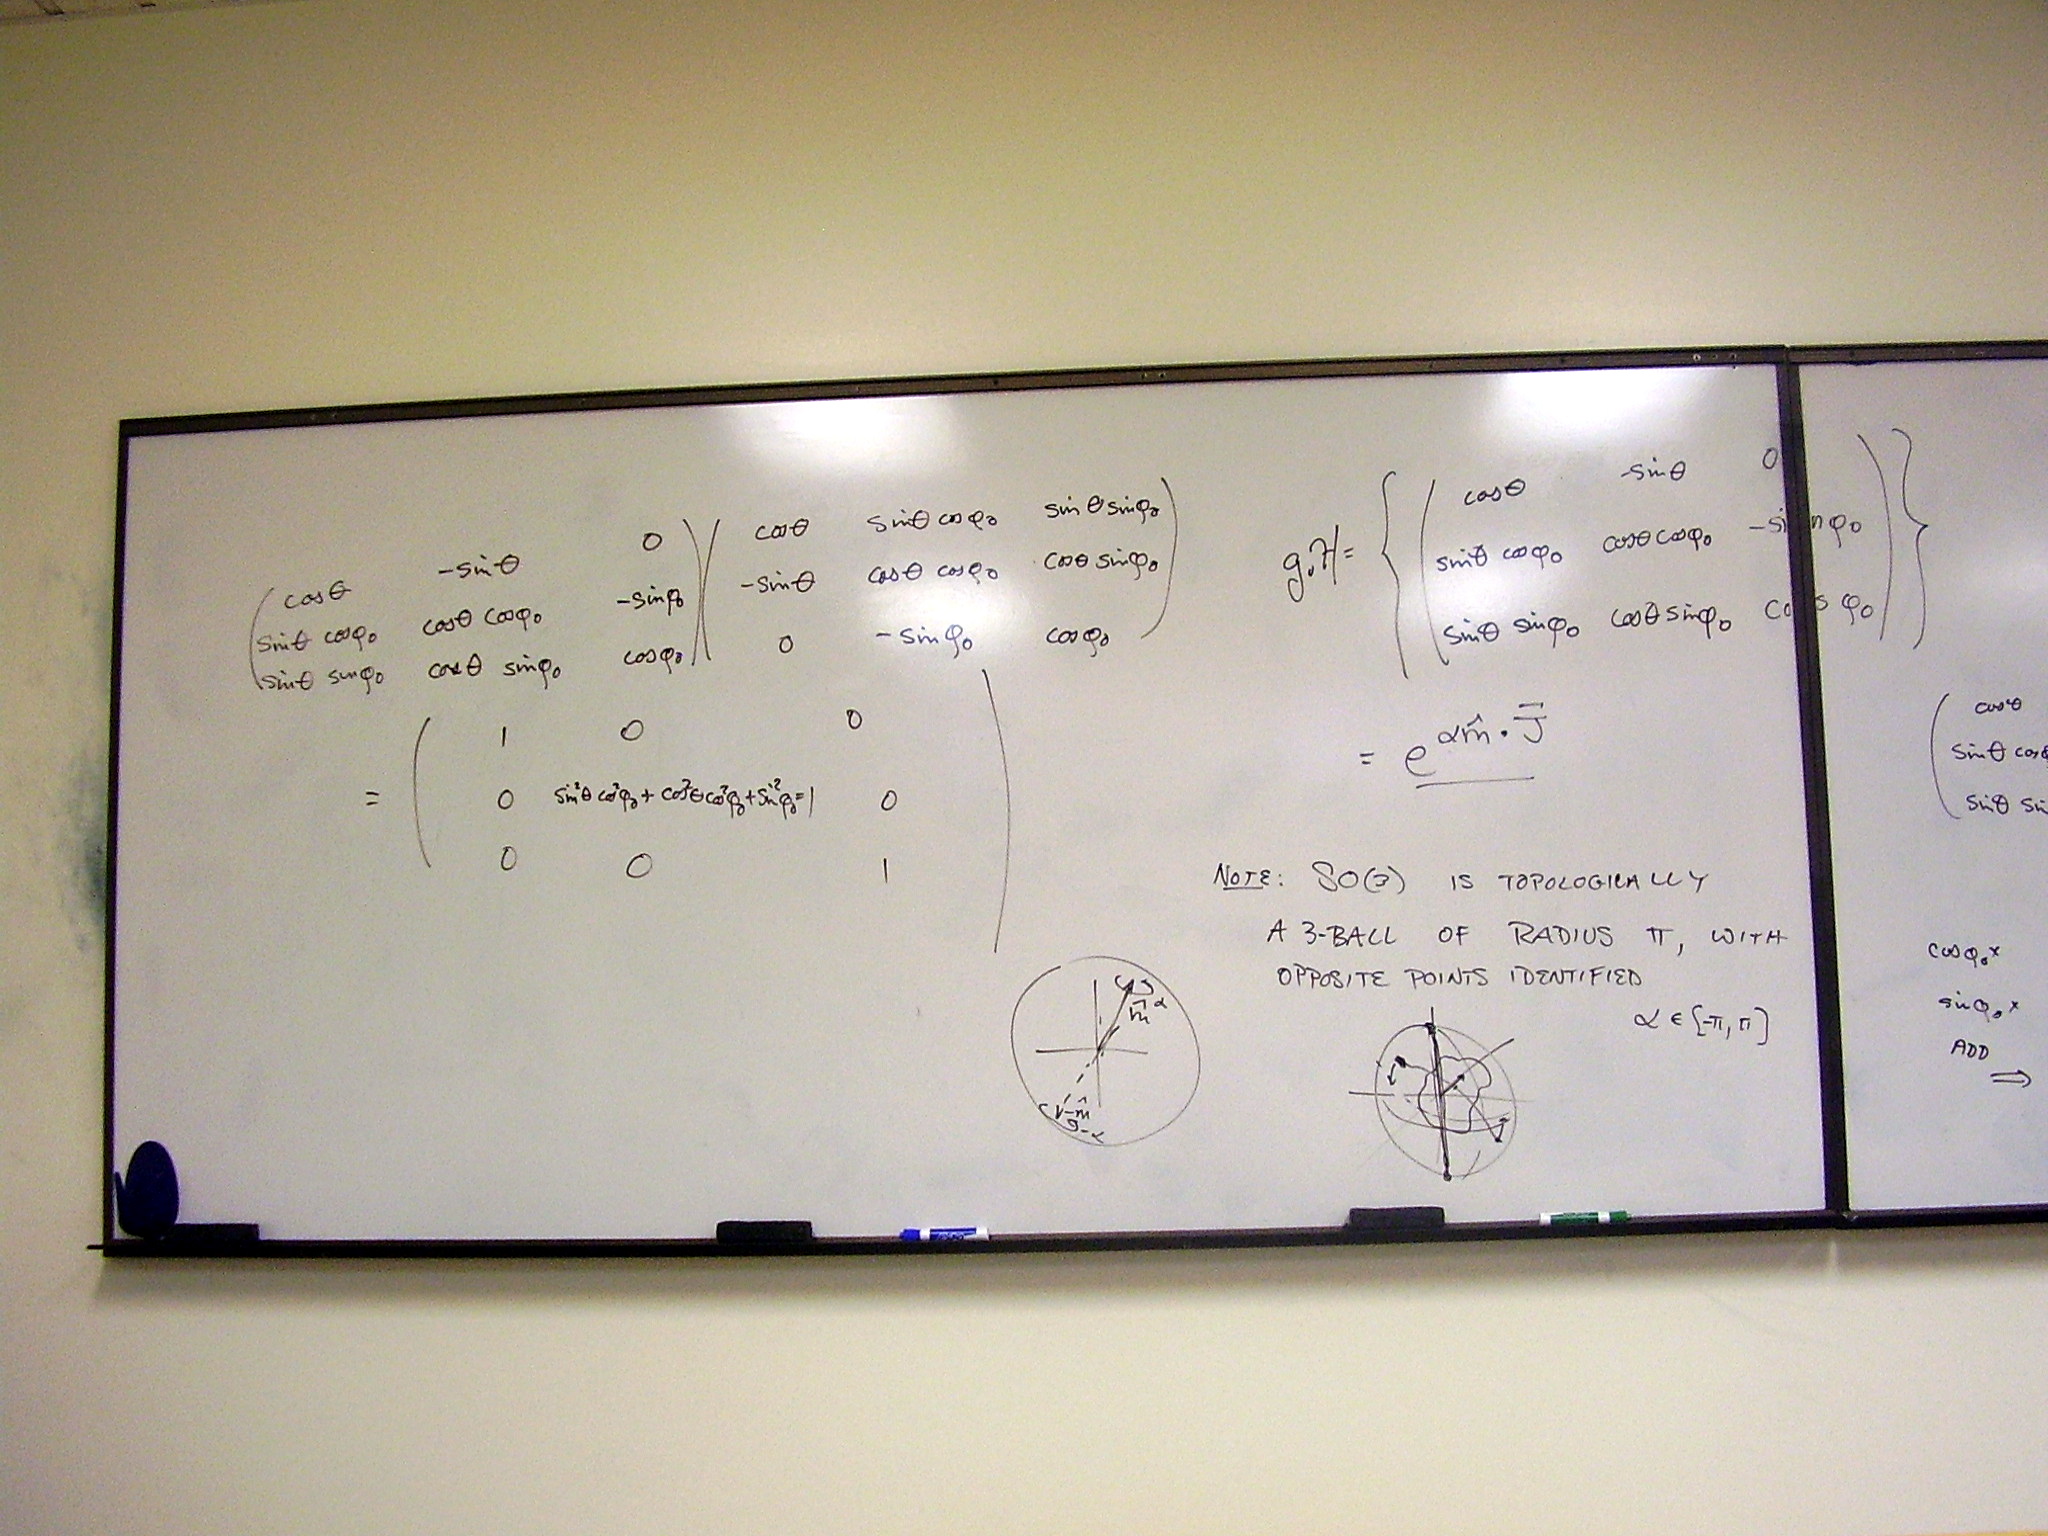 ( cosθ   -sinθ   0 ) ( cosθ   sinθ cosφ₀   sinθ sinφ₀ )
( sinθ cosφ₀   cosθ cosφ₀   -sinφ₀ ) ( -sinθ   cosθ cosφ₀   cosθ sinφ₀ )
( sinθ sinφ₀   cosθ sinφ₀   cosφ₀ ) ( 0   -sinφ₀   cosφ₀ )
( 1   0   0 )
= ( 0   sin²θ cos²φ₀ + cos²θ cos²φ₀ + sin²φ₀ = 1   0 )
( 0   0   1 )
m̂ α
-m̂
-α
{ ( cosθ   -sinθ   0 ) }
g₀H = { ( sinθ cosφ₀   cosθ cosφ₀   -sinφ₀ ) }
{ ( sinθ sinφ₀   cosθ sinφ₀   cosφ₀ ) }
= e^{αm̂ · J̄}
NOTE: SO(3) IS TOPOLOGICALLY
A 3-BALL OF RADIUS π, WITH
OPPOSITE POINTS IDENTIFIED
α ∈ [-π, π]
( cosθ
( sinθ cosφ
( sinθ sin
cosφ₀ x
sinφ₀ x
ADD
⇒